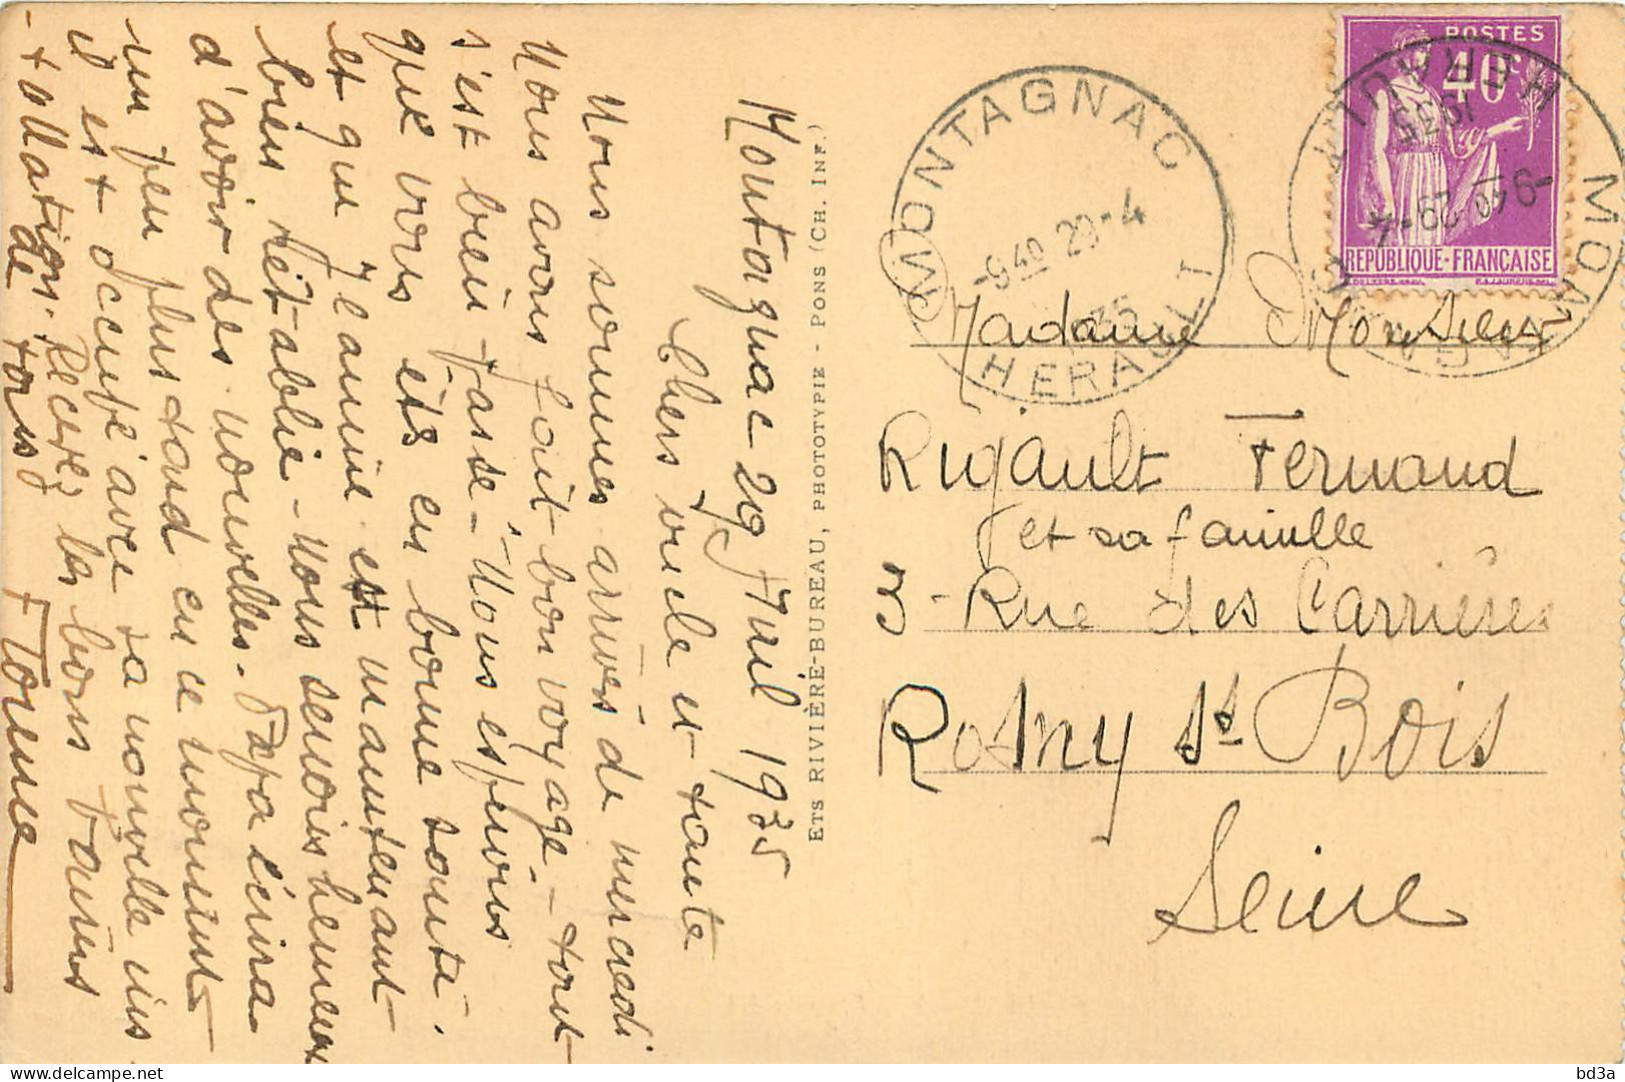 Montagnac 29 Avril 1935
Chers oncle et tante
Nous sommes arrivés de mercredi
Nous avons fait bon voyage - tout
s'est bien passé - Nous espérons
que vous êts en bonne santé.
et que Jeanine est maintenant
bien rétablie - Nous serions heureux
d'avoir des nouvelles. Papa écrira
un peu plus tard en ce moment
il est occupé avec sa nouvelle ins
- tallation. Recevez les bons baisers
de tous
Florine
ETS RIVIÈRE-BUREAU, PHOTOTYPIE - PONS (CH. INF.)
MONTAGNAC
-9 40 29-4
35
HERAULT
POSTES
40c
REPUBLIQUE-FRANÇAISE
MONTAGNAC
-9 40 29-4
1935
HERAULT
Madame Monsieur
Rigault Fernand
et sa famille
3 - Rue des Carrières
Rosny s/s Bois
Seine
bd3a